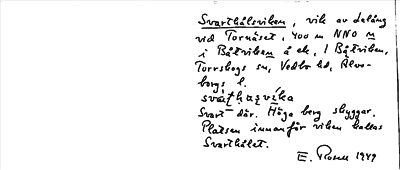 Svarthålsviken, vik av Delång
vid Tornäset, 400 m NNO m
i Båtviken å ek, / Båtviken.
Torrskogs sn, Vedbo hd, Älvs-
borgs l.
Svart där. Höga berg skuggar.
Platsen innanför viken kallas
Svarthålet.
E. Rosell 1949